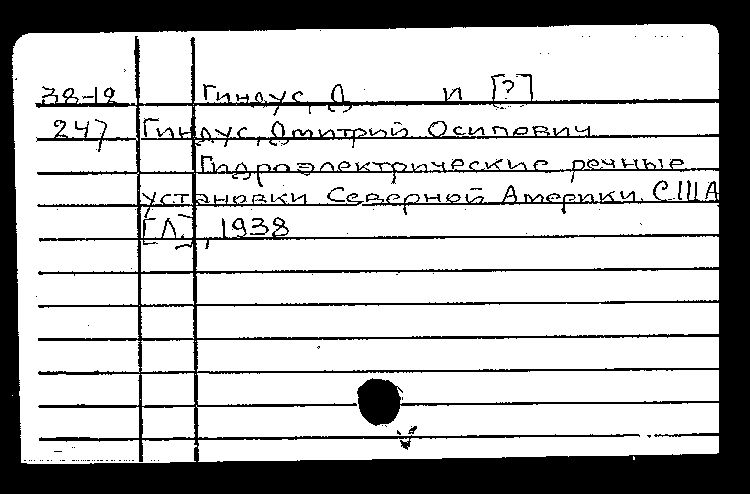 38-18 Гиндус, Д и [?]
247 Гиндус, Дмитрий Осипович
Гидроэлектрические речные
установки Северной Америки. США
[Л.], 1938